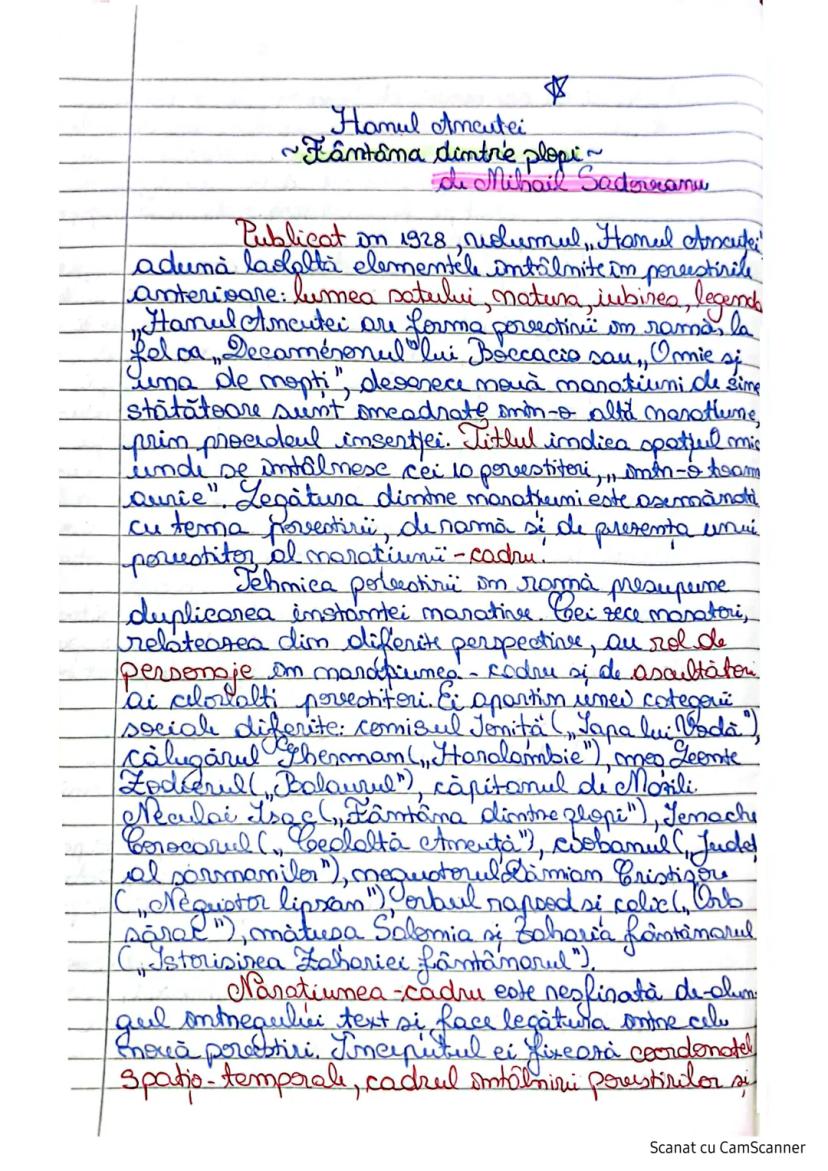 Hanul Ancuței
~Fântâna dintre plopi~
de Mihail Sadoveanu
Publicat în 1928, volumul „Hanul Ancuței"
adună laolaltă elementele întâlnite în povestirile
anterioare: lumea satului, natura, iubirea, legenda
„Hanul Ancuței are forma povestirii în ramă, la
fel ca „Decameronul" lui Boccacio sau „O mie și
una de nopți", deoarece nouă narațiuni de sine
stătătoare sunt încadrate într-o altă narațiune,
prin procedeul inserției. Titlul indica spațiul mic
unde se întâlnesc cei 10 povestitori, „într-o toam
aurie". Legătura dintre narațiuni este asemănată
cu tema povestirii, de ramă și de prezența unui
povestitor al narațiunii-cadru.
Tehnica povestirii în ramă presupune
duplicarea instanței narative. Cei zece naratori,
relatearea din diferite perspective, au rol de
personaje în narațiunea-cadru și de ascultători
ai celorlalți povestitori. Ei aparțin unei categorii
sociale diferite: comisul Ioniță („Iapa lui Vodă"),
călugărul Gherman („Haralambie"), moș Leonte
Zodierul („Balaurul"), căpitanul de Mazili
Neculai Isac („Fântâna dintre plopi"), Ienache
Corocarul („Cealaltă Ancuța"), ciobanul („Județ
al sărmanilor"), neguțătorul Dămian Cristișor
(„Negustor lipscan"), orbul rapsod și calic („Orb
sărac"), mătușa Salomia și Zaharia fântânarul
(„Istorisirea Zahariei fântânarul").
Narațiunea-cadru este resfirată de-alun-
gul întregului text și face legătura între cele
nouă povestiri. Începutul ei fixează coordonatel
spațio-temporale, cadrul întâlnirii povestirilor și
Scanat cu CamScanner